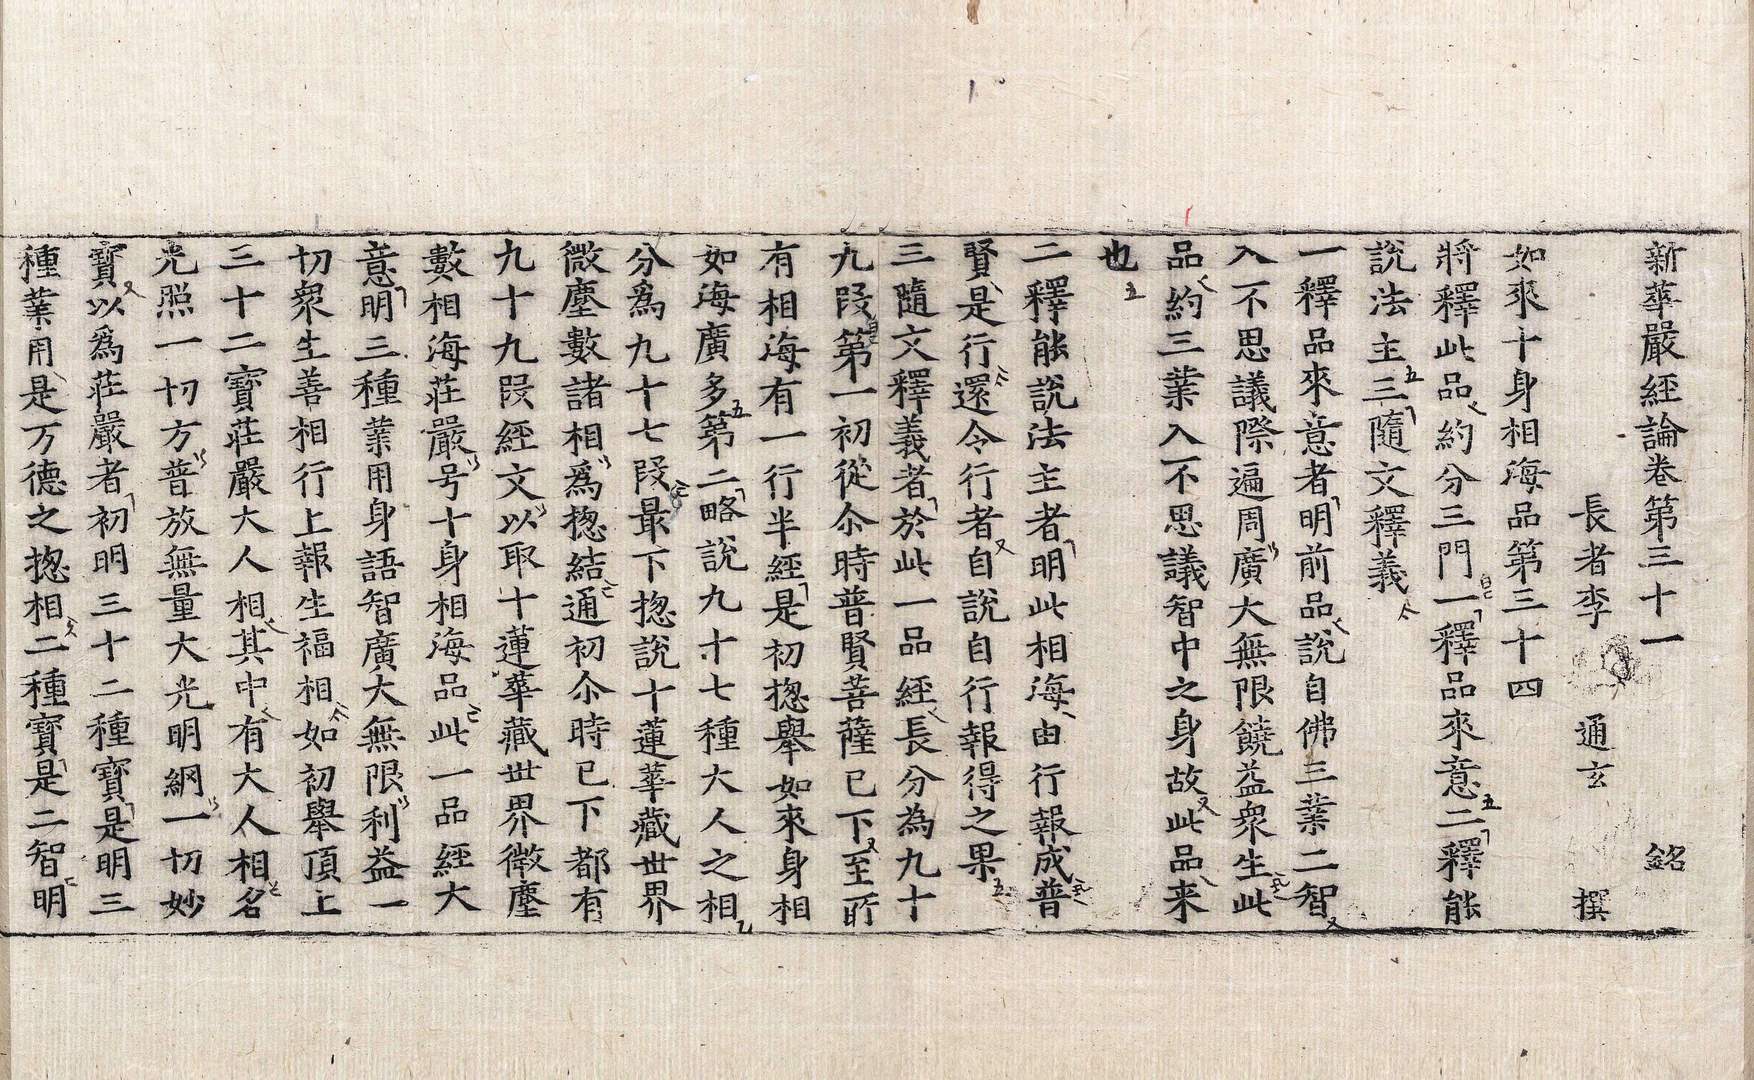 新華嚴經論卷第三十一 銘
長者李 通玄 撰
如來十身相海品第三十四
將釋此品約分三門一釋品來意二釋能
說法主三隨文釋義
一釋品來意者明前品說自佛三業二智
入不思議際遍周廣大無限饒益衆生此
品約三業入不思議智中之身故此品来
也
二釋能說法主者明此相海由行報成普
賢是行還令行者自說自行報得之果
三隨文釋義者於此一品經長分為九十
九段第一初從尒時普賢菩薩已下至所
有相海有一行半經是初揔舉如來身相
如海廣多第二略說九十七種大人之相
分爲九十七段最下揔說十蓮華藏世界
微塵數諸相爲揔結通初尒時已下都有
九十九段經文以取十蓮華藏世界微塵
數相海莊嚴号十身相海品此一品經大
意明三種業用身語智廣大無限利益一
切衆生善相行上報生福相如初舉頂上
三十二寶莊嚴大人相其中有大人相名
光照一切方普放無量大光明網一切妙
寶以爲莊嚴者初明三十二種寶是明三
種業用是万德之揔相二種寶是二智明